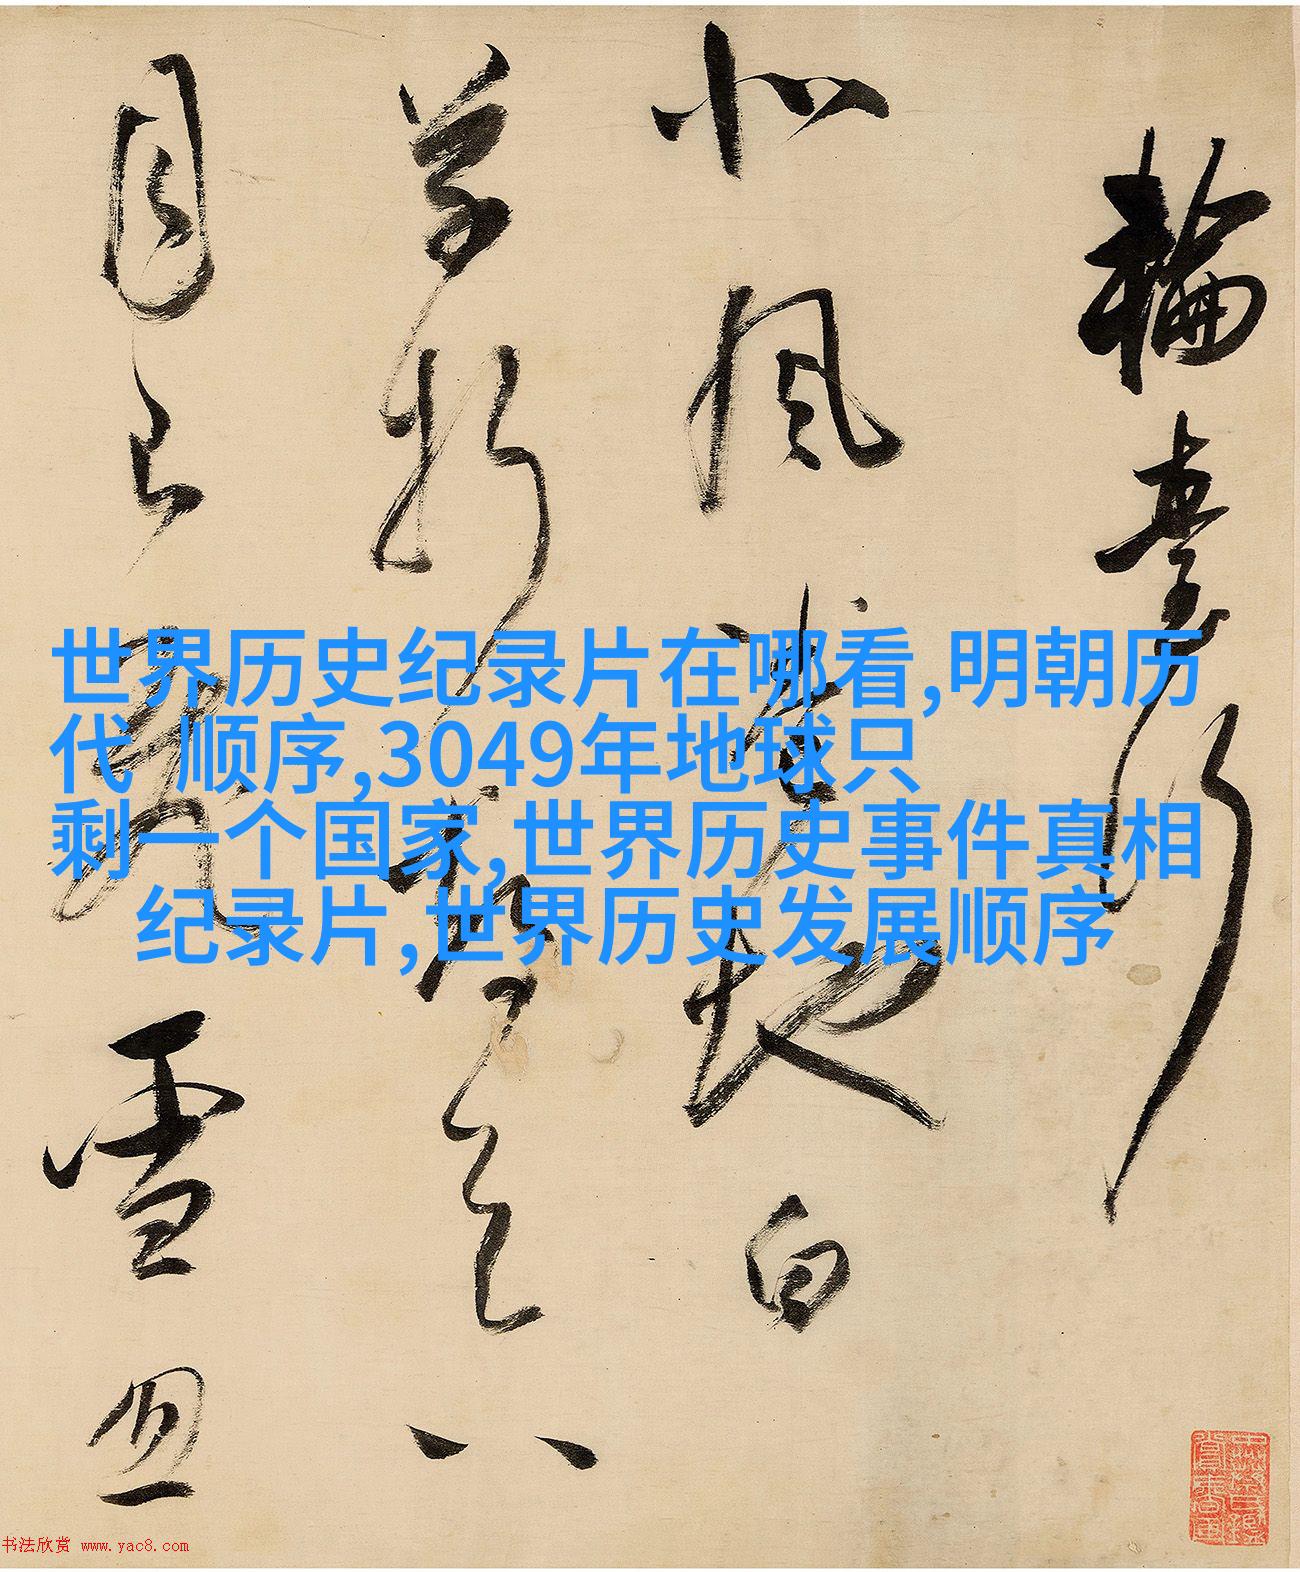 輪臺行
北風地白
草折天八
月雪
世界历史纪录片在哪看,明朝历
代 顺序,3049年地球只
剩一个国家,世界历史事件真相
纪录片,世界历史发展顺序
书法欣赏 www.yac8.com